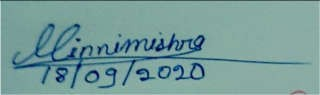 Minnimishra
18/09/2020